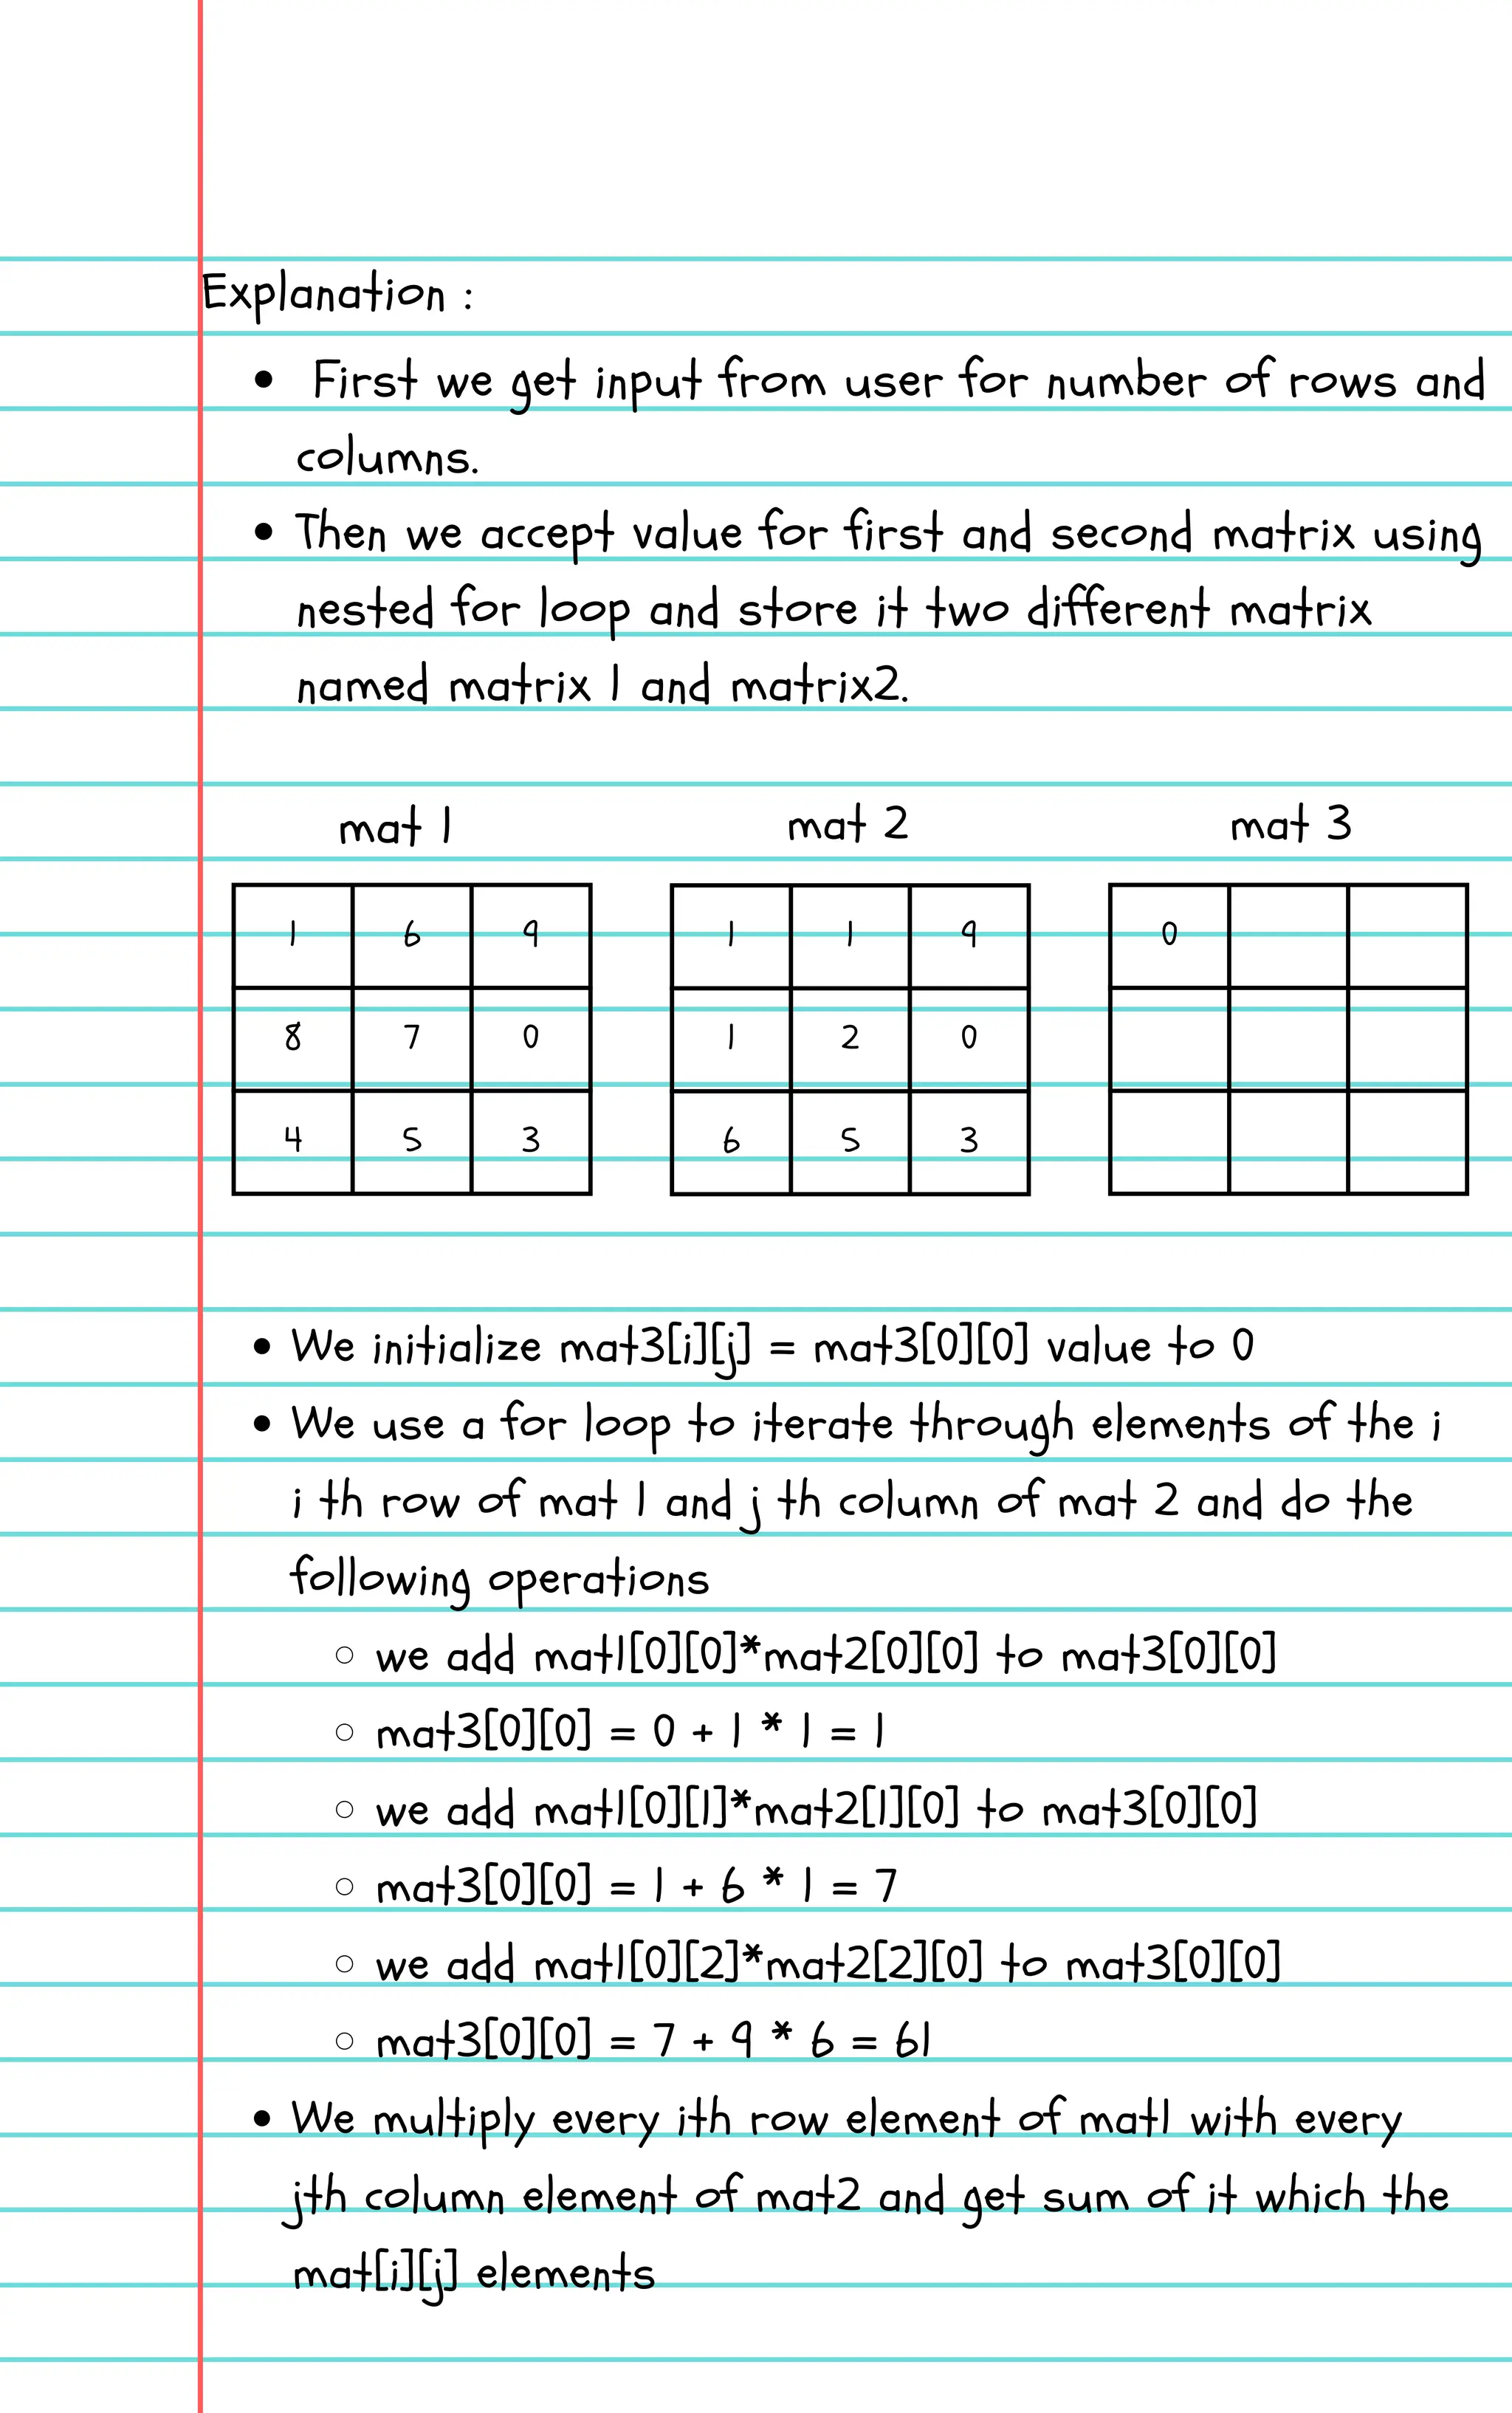 Explanation :
• First we get input from user for number of rows and
columns.
• Then we accept value for first and second matrix using
nested for loop and store it two different matrix
named matrix 1 and matrix2.
mat 1 mat 2 mat 3
1 6 9 1 1 9 0
8 7 0 1 2 0
4 5 3 6 5 3
• We initialize mat3[i][j] = mat3[0][0] value to 0
• We use a for loop to iterate through elements of the i
i th row of mat 1 and j th column of mat 2 and do the
following operations
○ we add mat1[0][0]*mat2[0][0] to mat3[0][0]
○ mat3[0][0] = 0 + 1 * 1 = 1
○ we add mat1[0][1]*mat2[1][0] to mat3[0][0]
○ mat3[0][0] = 1 + 6 * 1 = 7
○ we add mat1[0][2]*mat2[2][0] to mat3[0][0]
○ mat3[0][0] = 7 + 9 * 6 = 61
• We multiply every ith row element of mat1 with every
jth column element of mat2 and get sum of it which the
mat[i][j] elements